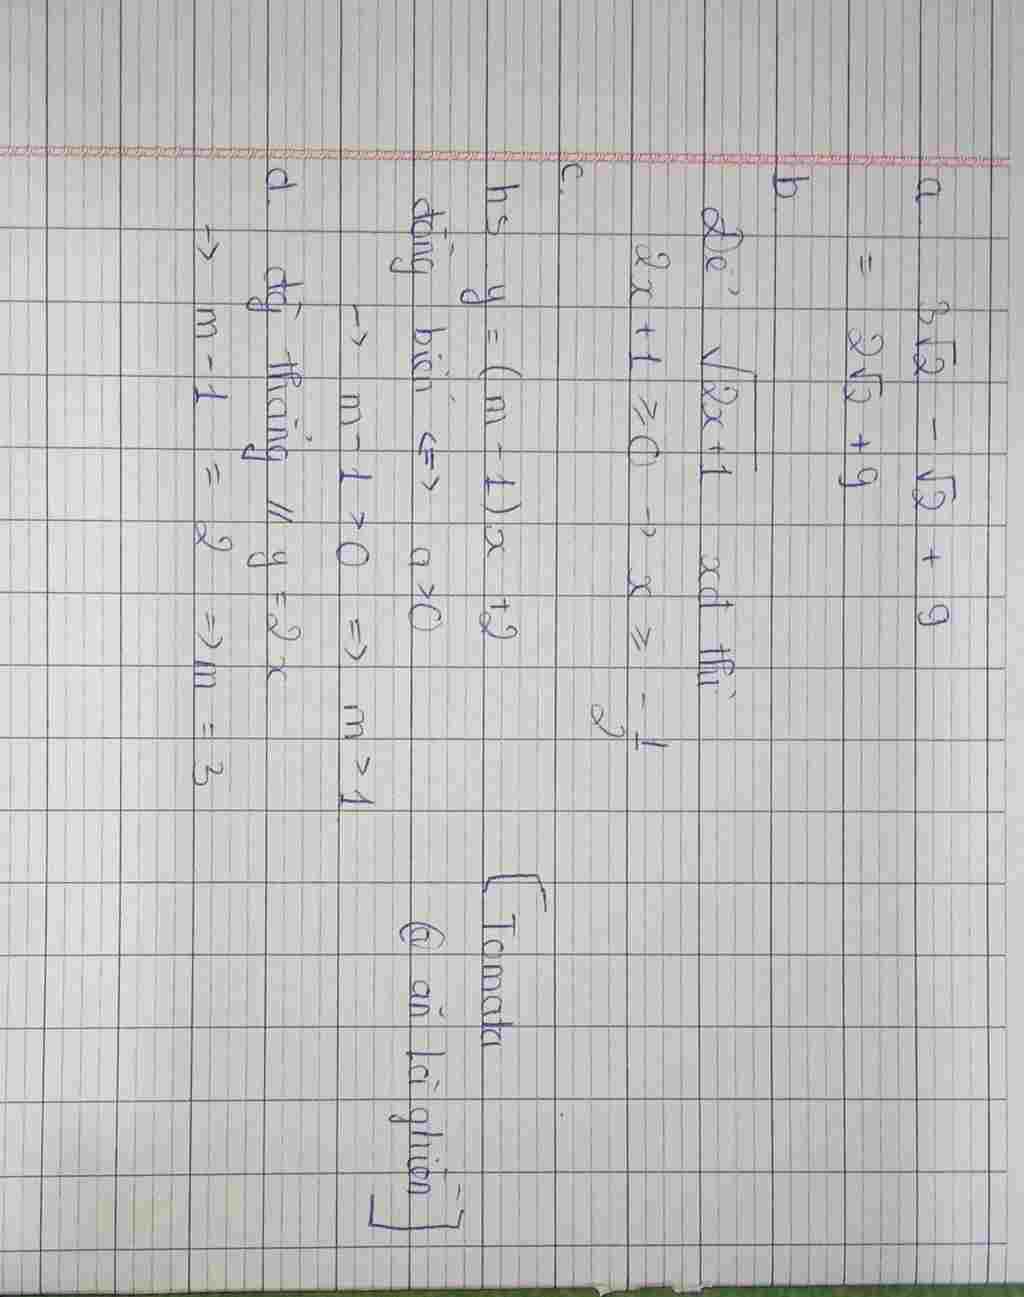 a. 3√2 - √2 + 9
= 2√2 + 9
b.
Để √2x+1 xđ thì
2x + 1 ≥ 0 → x ≥ -1/2
c.
hs y = (m - 1)x + 2
đồng biến <=> a > 0
→ m - 1 > 0 => m > 1
d. đg thẳng // y = 2x
→ m - 1 = 2 => m = 3
[Tomato
@ ăn là ghiền]